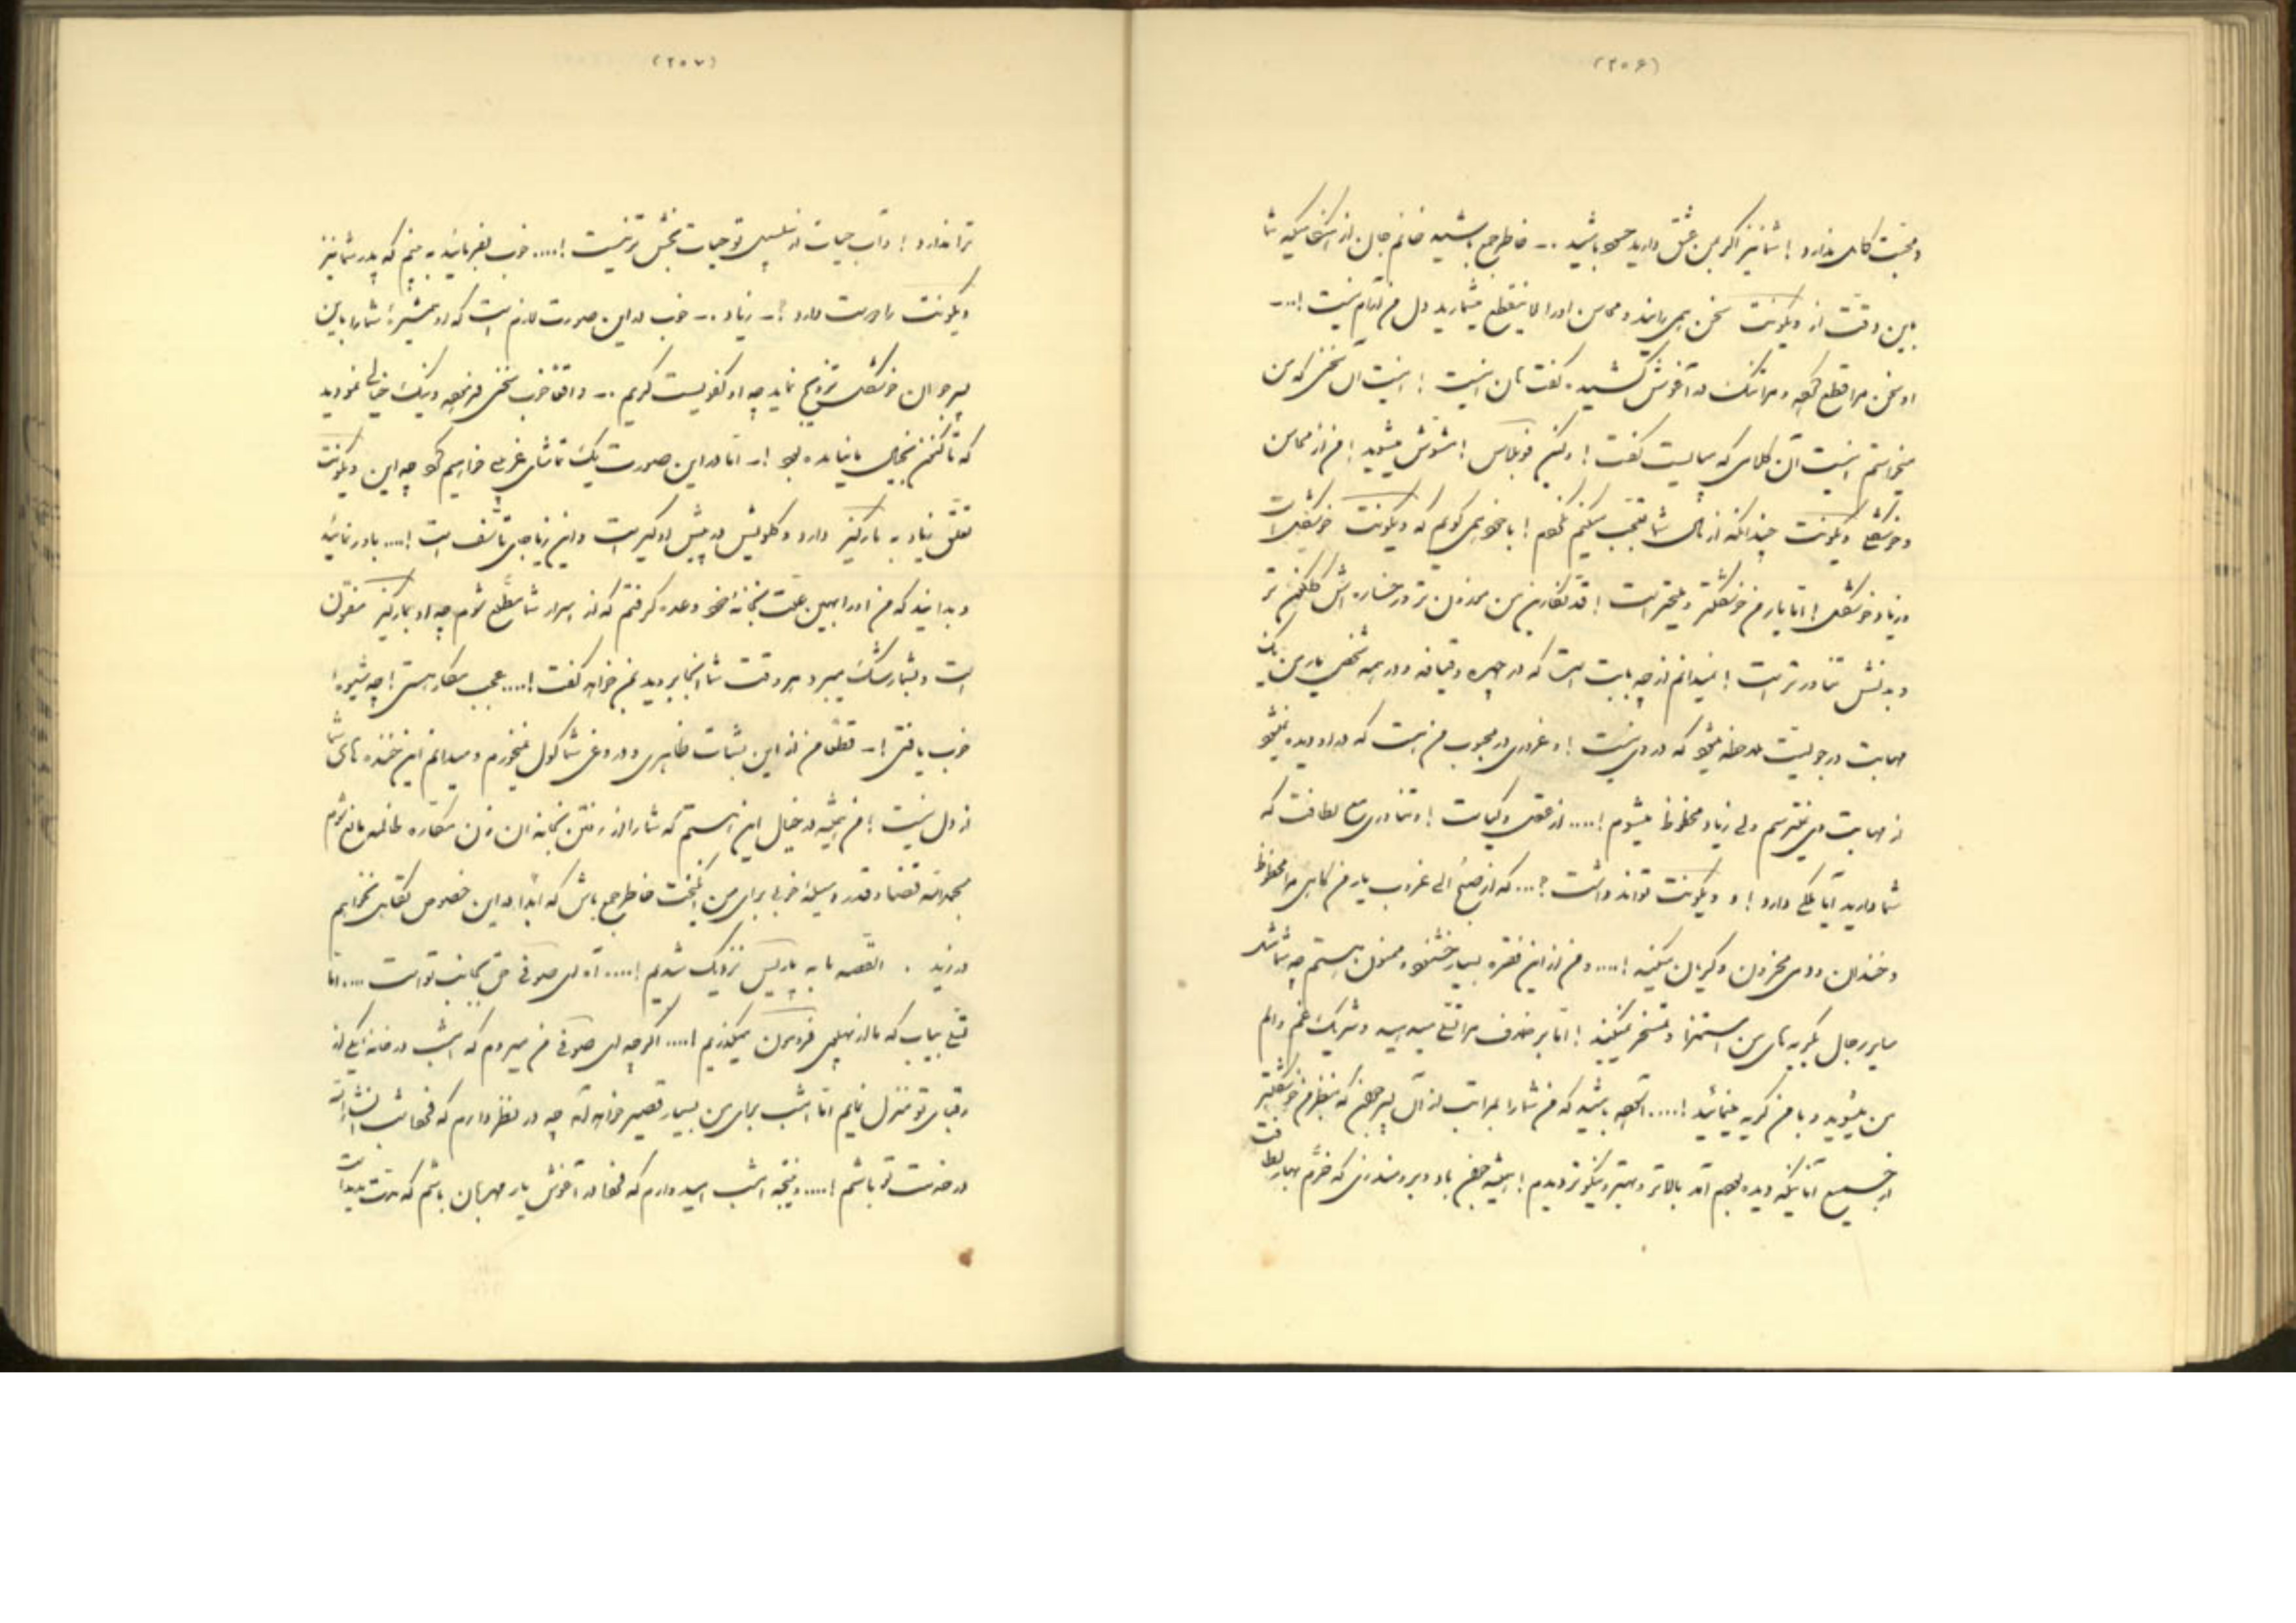 (۲۰۶)
و محبت کامل ندارد! شما نیز اگر بمن عشق دارید حسود باشید ..- خاطر جمع باشید خانم جان از اشخاصیکه شما
باین دقت از ویکونت سخن همی رانید و محاسن او را لاینقطع میشمارید دل من آرام نیست!...-
او سخن مرا قطع کرده و مرا تنگ در آغوش کشیده گفت هان اینست! اینست آن سخنی که من
میخواستم اینست آن کلامی که میبایست گفت! ولکن فوبلاس! مشوش مشوید! من از محاسن
و خوشگلی ویکونت چندانکه از مال شما تعجب میکنم نکردم! با خود همی گویم که ویکونت خوشگل است
و زیاد خوشگل! اما یار من خوشگلتر و بهتر است! قد نگارین من موزون تر و رخساره اش گلگون تر
و بدنش تنا ور تر است! نمیدانم از چه بابت است که در چهره و قیافه و در همه شخص یار من یک
مهابت و رجولیت ملاحظه میشود که در وی نیست! و غروری در محبوب من است که در او دیده نمیشود
از مهابت وی نمیترسم ولی زیاد محظوظ میشوم!.... از عقل و کیاست! و تنا وری مع لطافت که
شما دارید آیا ملکی دارد! و ویکونت تواند داشت؟... که از صبح الی غروب یار من گاهی مرا محظوظ
و خندان و دمی محزون و گریان میکند!.... و من از این فقره بسیار خشنود و ممنون هستم چه شما مثل
سایر رجال بگریه های من استهزا و تمسخر نمیکنید! اما بر خلاف مرا تسلی میدهید و شریک غم و الم
من میشوید و با من گریه مینمائید!.... آسوده باشید که من شما را بمراتب از آن پسر جوان که بنظر من خوشگلتر
از جمیع آنانیکه دیده بودم آمد بالاتر و بهتر و نیکوتر دیدم! همیشه جوان باد و برومند رزی که خرم بهار لطافت
(۲۰۷)
ترا ندارد! و آب حیات از سلسبیل تو حیات بخش تر نیست!.... خوب بفرمائید ببینم که پدر شما نیز
ویکونت را دوست دارد؟- زیاد ..- خوب در این صورت لازم است که او همشیرهٔ شما را باین
پسر جوان خوشگل تزویج نماید چه او کفویست کریم ..- واقعا خوب سخنی فرمودید و نیک خیالی نمودید
که تا کنون بخیال ما نیامده بود!- اما در این صورت یک تماشای غریبی خواهیم کرد چه این ویکونت
تعلق زیاد به مارکیز دارد و گلویش در پیش او گیر است و این زیاد جای تأسف است!.... باور نمائید
و بدانید که من او را بهمین علت بخانه خود وعده گرفتم که از اسرار شما مطلع شوم چه او بمارکیز مفتون
است و بشما رشک میبرد و هر وقت شما آنجا بروید بمن خواهد گفت!.... عجب مکار هستی! چه شیوهٔ
خوب یافتی!- قطعا من از این بشاشت ظاهری و دروغی شما گول نمیخورم و میدانم این خنده های شما
از دل نیست! من همیشه در خیال این هستم که شما را از رفتن بخانه آن زن مکاره ظالمه مانع شوم
بحمدالله قضا و قدر وسیله خوبی برای من انگیخت خاطر جمع باش که ابدا در این خصوص تغافل نخواهم
ورزید . القصه ما به پاریس نزدیک شدیم!.... آه ای صوفی حق بجانب تو است .... اما
تسلی بیاب که ما از پهلوی فروموں میگذریم!.... اگر چه ای صوفی من میروم که امشب در خانه یکی از
رقبای تو منزل نمایم اما امشب برای من بسیار قصیر خواهد آمد چه در نظر دارم که فردا شب انشاء الله
در خدمت تو باشم!.... و نتیجه امشب امیدوارم که فردا در آغوش یار مهربان باشم که مدت مدیدی است